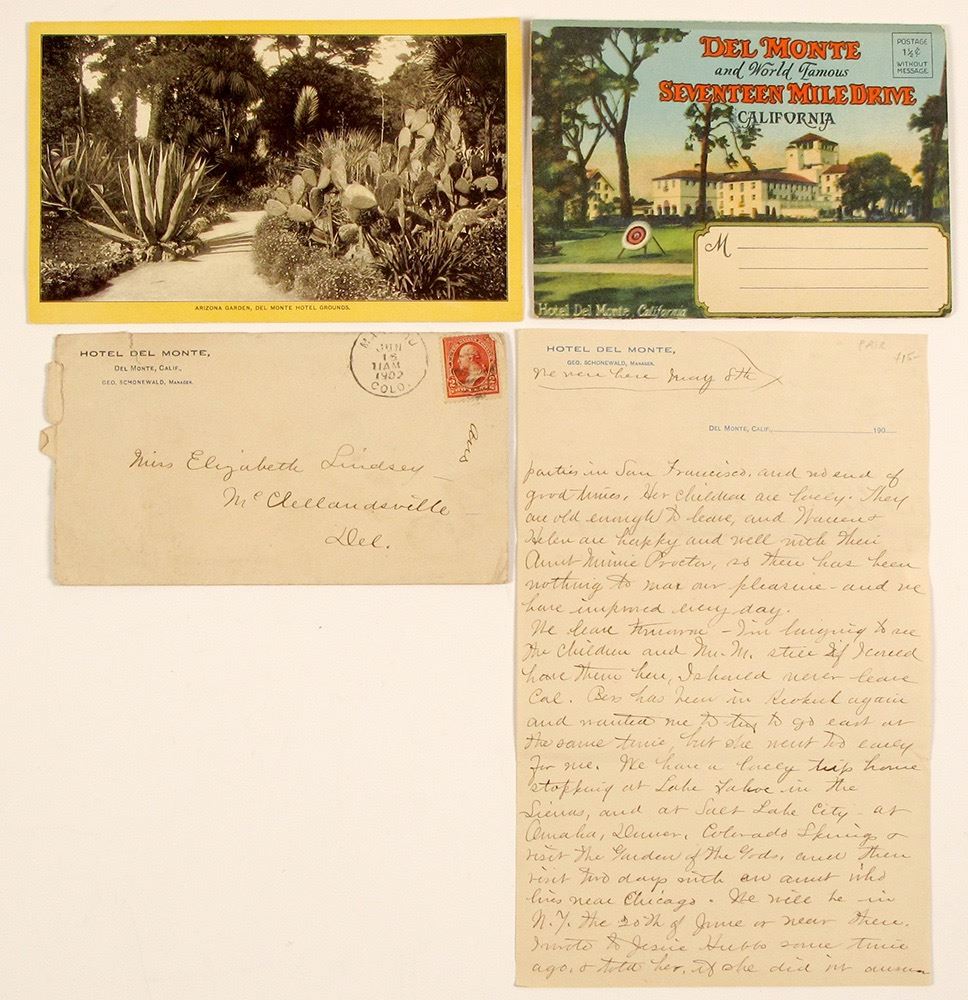 ARIZONA GARDEN, DEL MONTE HOTEL GROUNDS.
DEL MONTE
and World Famous
SEVENTEEN MILE DRIVE
CALIFORNIA
POSTAGE
1½¢
WITHOUT
MESSAGE
M
Hotel Del Monte, California
HOTEL DEL MONTE,
DEL MONTE, CALIF.,
GEO. SCHONEWALD, MANAGER.
JUN
18
11AM
1902
COLO.
2 2
Miss Elizabeth Lindsey
McClellandsville
Del.
PAIR
$15-
HOTEL DEL MONTE,
GEO. SCHONEWALD, MANAGER.
We were here May 8th
DEL MONTE, CALIF., 190
parties in San Francisco, and no end of
good times. Her children are lovely. They
are old enough to leave, and Warren &
Helen are happy and well with their
Aunt Minnie Proctor, so there has been
nothing to mar our pleasure - and we
have improved every day.
We leave tomorrow - I'm longing to see
the children and Mr. M. still if I could
have them here, I should never leave
Cal. Bess has been in Keokuk again
and wanted me to try to go east at
the same time, but she went too early
for me. We have a lovely trip home
stopping at Lake Tahoe in the
Sierras, and at Salt Lake City - at
Omaha, Denver, Colorado Springs &
visit the Garden of the Gods, and then
visit two days with an aunt who
lives near Chicago. We will be in
N.Y. the 20th of June or near there.
I wrote to Jessie Hubbs some time
ago, & told her, if she did not answer